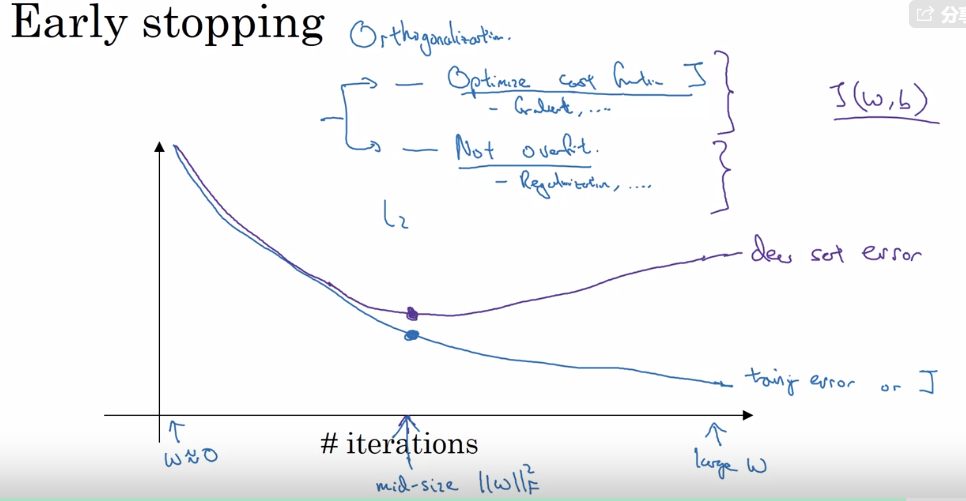 Early stopping
分享
Orthogonalization.
— Optimize cost function J
- Gradient, ....
J(w,b)
— Not overfit.
- Regularization, ....
L2
dev set error
training error or J
w≈0
# iterations
large w
mid-size ||w||²_F